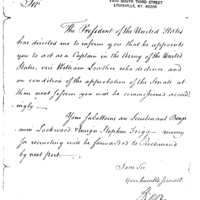 2200 SOUTH THIRD STREET
LOUISVILLE, KY. 40208
Sir
The President of the United States
has directed me to inform you that he appoints
you to act as a Captain in the Army of the United
States, vice William Lowther who declines and
on condition of the approbation of the Senate at
their next session you will be commissioned accord
ingly
Your Subalterns are Lieutenant Benja
min Lockwood & Ensign Stephen Trigg – money
for recruiting will be forwarded to Richmond
by next post
I am Sir
Your humble servant